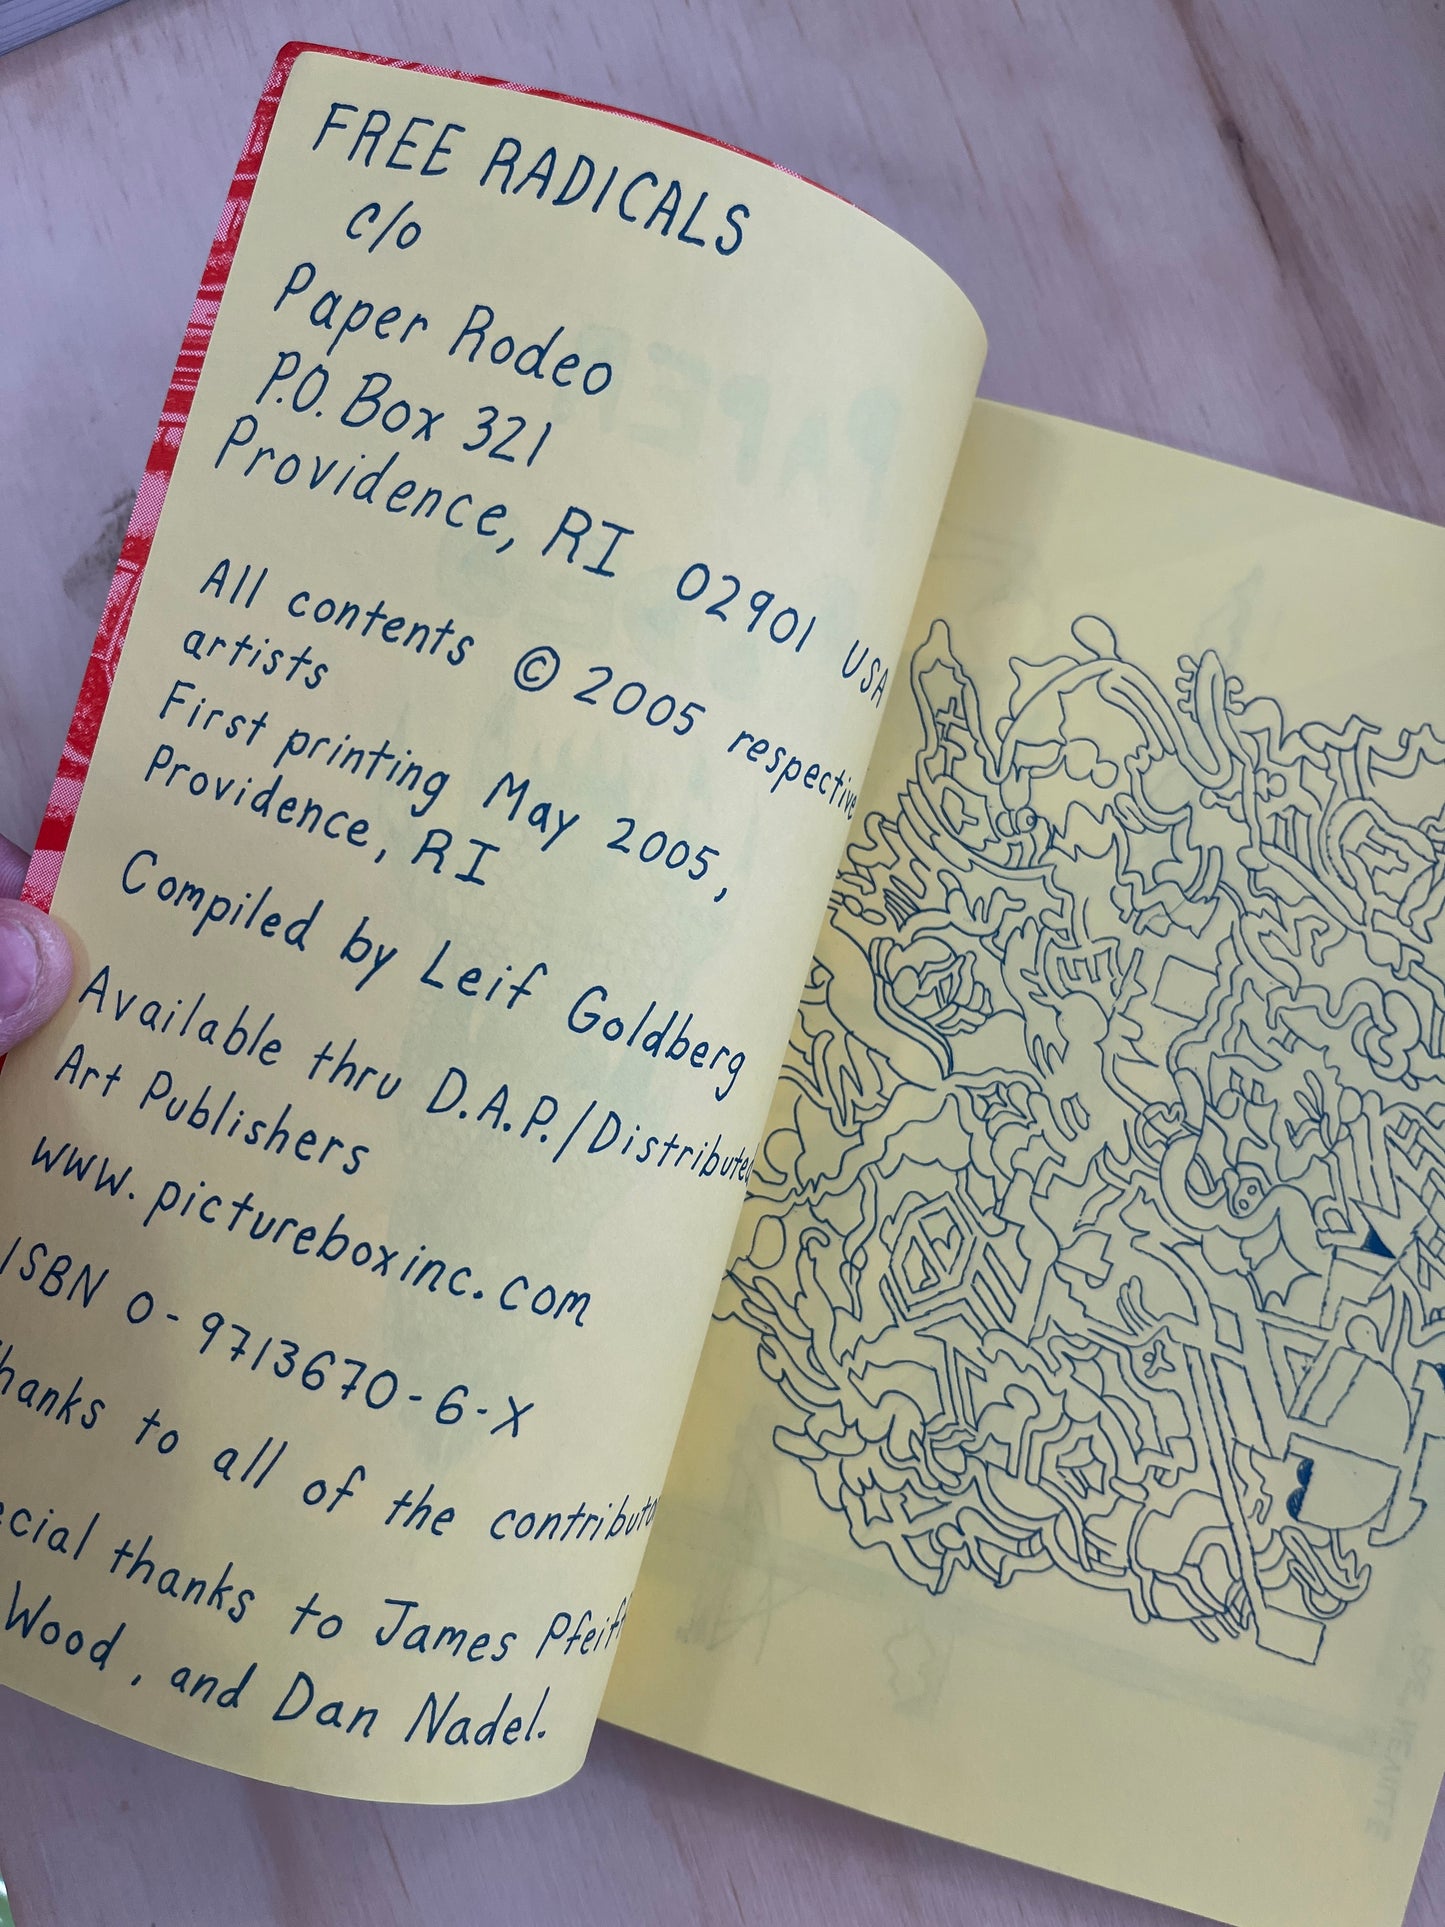 FREE RADICALS
c/o
Paper Rodeo
P.O. Box 321
Providence, RI 02901 USA
All contents © 2005 respective
artists
First printing May 2005,
Providence, RI
Compiled by Leif Goldberg
Available thru D.A.P./Distributed
Art Publishers
www.pictureboxinc.com
ISBN 0-9713670-6-X
to all of the
thanks to James
Wood, and Dan Nadel.